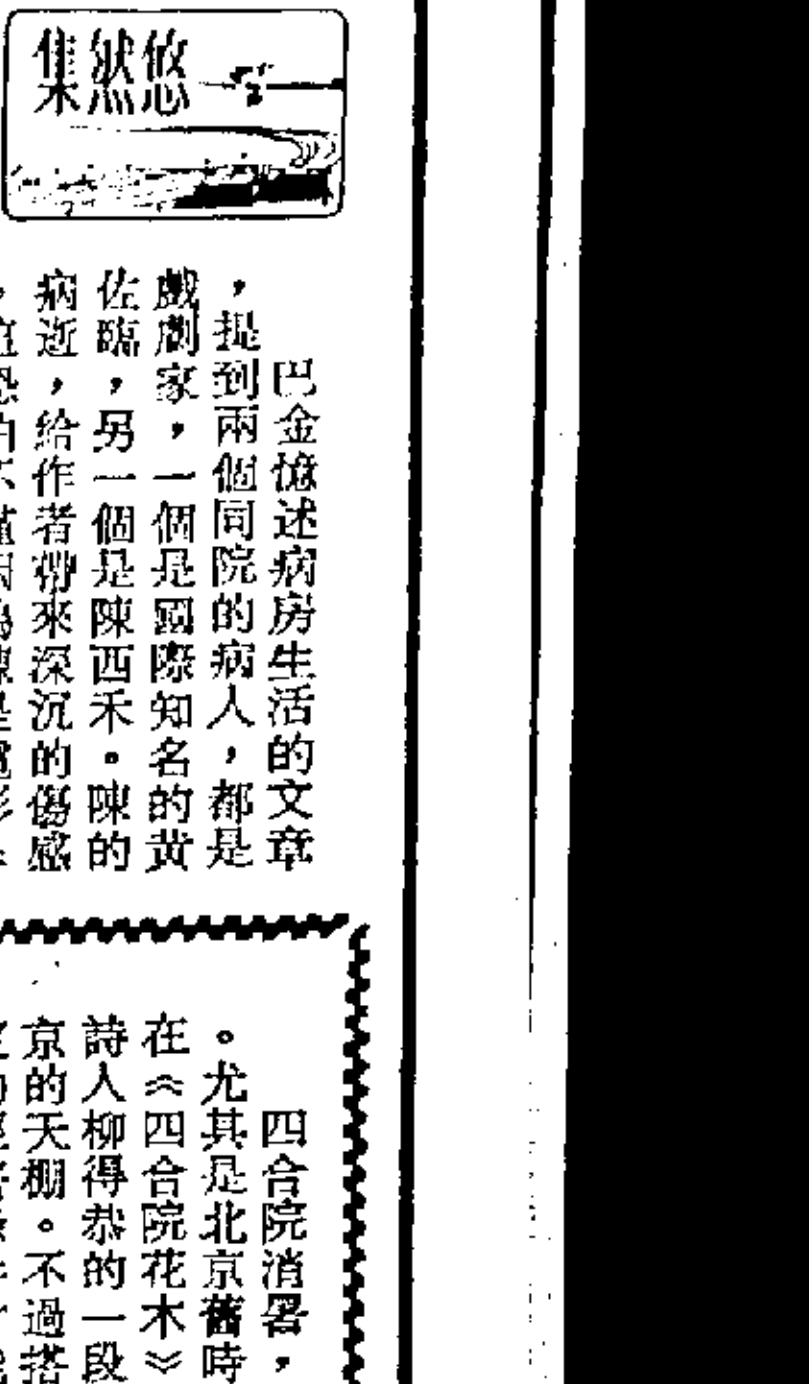 悠然集
巴金憶述病房生活的文章
，提到兩個同院的病人，都是
戲劇家，一個是國際知名的黃
佐臨，另一個是陳西禾。陳的
病逝，給作者帶來深沉的傷感
四合院消暑，
。尤其是北京舊時
在《四合院花木》
詩人柳得恭的一段
京的天棚。不過搭